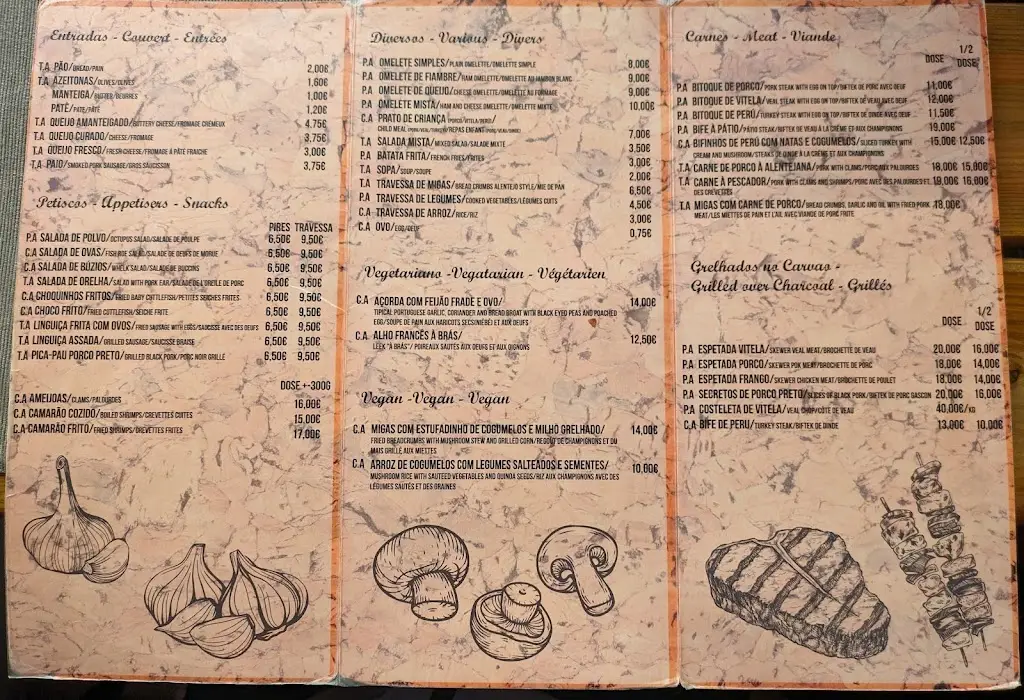 Entradas - Couvert - Entrées
T.A PÃO/BREAD/PAIN 2,00€
T.A AZEITONAS/OLIVES/OLIVES 1,60€
MANTEIGA/BUTTER/BEURRES 1,00€
PATÊ/PATE/PÂTÉ 1,20€
T.A QUEIJO AMANTEIGADO/BUTTERY CHEESE/FROMAGE CREMEUX 4,75€
T.A QUEIJO CURADO/CHEESE/FROMAGE 3,75€
T.A QUEIJO FRESCO/FRESH CHEESE/FROMAGE À PÂTE FRAICHE 3,00€
T.A PAIO/SMOKED PORK SAUSAGE/GROS SAUCISSON 3,75€
Petiscos - Appetisers - Snacks
PIRES TRAVESSA
P.A SALADA DE POLVO/OCTUPUS SALAD/SALADE DE POULPE 6,50€ 9,50€
C.A SALADA DE OVAS/FISH ROE SALAD/SALADE DE OEUFS DE MORUE 6,50€ 9,50€
C.A SALADA DE BÚZIOS/WHELK SALAD/SALADE DE BUCCINS 6,50€ 9,50€
T.A SALADA DE ORELHA/SALAD WITH PORK EAR/SALADE DE L'OREILE DE PORC 6,50€ 9,50€
C.A CHOQUINHOS FRITOS/FRIED BABY CUTTLEFISH/PETITES SEICHES FRITES 6,50€ 9,50€
C.A CHOCO FRITO/FRIED CUTTLEFISH/SEICHE FRITE 6,50€ 9,50€
T.A LINGUIÇA FRITA COM OVOS/FRIED SAUSAGE WITH EGGS/SAUCISSE AVEC DES OEUFS 6,50€ 9,50€
T.A LINGUIÇA ASSADA/GRILLED SAUSAGE/SAUCISSE BRAISE 6,50€ 9,50€
T.A PICA-PAU PORCO PRETO/GRILLED BLACK PORK/PORC NOIR GRILLÉ 6,50€ 9,50€
DOSE +-300G
C.A AMEIJOAS/CLAMS/PALOURDES 16,00€
C.A CAMARÃO COZIDO/BOILED SHRIMPS/CREVETTES CUITES 15,00€
C.A CAMARÃO FRITO/FRIED SHRIMPS/CREVETTES FRITES 17,00€
Diversos - Various - Divers
P.A OMELETE SIMPLES/PLAIN OMELETTE/OMELETTE SIMPLE 8,00€
P.A OMELETE DE FIAMBRE/HAM OMELETTE/OMELETTE AU JAMBON BLANC 9,00€
P.A OMELETE DE QUEIJO/CHEESE OMELETTE/OMELETTE AU FORMAGE 9,00€
P.A OMELETE MISTA/HAM AND CHEESE OMELETTE/OMELETTE MIXTE 10,00€
C.A PRATO DE CRIANÇA (PORCO/VITELA/PERU)/
CHILD MEAL (PORK/VEAL/TURKEY)/REPAS ENFANT (PORC/VEAU/DINDE) 7,00€
T.A SALADA MISTA/MIXED SALAD/SALADE MIXTE 3,50€
P.A BATATA FRITA/FRENCH FRIES/FRITES 3,00€
T.A SOPA/SOUP/SOUPE 2,00€
T.A TRAVESSA DE MIGAS/BREAD CRUMBS ALENTEJO STYLE/MIE DE PAN 6,50€
P.A TRAVESSA DE LEGUMES/COOKED VEGETABLES/LÉGUMES CUITS 4,50€
C.A TRAVESSA DE ARROZ/RICE/RIZ 3,00€
C.A OVO/EGG/OEUF 0,75€
Vegetariano -Vegatarian - Végétarien
C.A AÇORDA COM FEIJÃO FRADE E OVO/ 14,00€
TIPICAL PORTUGUESE GARLIC, CORIANDER AND BREAD BROAT WITH BLACK EYED PEAS AND POACHED
EGG/SOUPE DE PAIN AUX HARICOTS SECS(NIÉBÉ) ET AUX OEUFS
C.A ALHO FRANCÊS À BRÁS/ 12,50€
LEEK "À BRÁS"/ POIREAUX SAUTÉS AUX OEUFS ET AUX OIGNONS
Vegan -Vegan - Vegan
C.A MIGAS COM ESTUFADINHO DE COGUMELOS E MILHO GRELHADO/ 14,00€
FRIED BREADCRUMBS WITH MUSHROOM STEW AND GRILLED CORN/REGOUT DE CHAMPIGNONS ET DU
MAIS GRILLÉ AUX MIETTES
C.A ARROZ DE COGUMELOS COM LEGUMES SALTEADOS E SEMENTES/ 10,00€
MUSHROOM RICE WITH SAUTEED VEGETABLES AND QUINOA SEEDS/RIZ AUX CHAMPIGNONS AVEC DES
LÉGUMES SAUTÉS ET DES GRAINES
Carnes - Meat - Viande
DOSE 1/2 DOSE
P.A BITOQUE DE PORCO/PORK STEAK WITH EGG ON TOP/BIFTEK DE PORC AVEC OEUF 11,00€
P.A BITOQUE DE VITELA/VEAL STEAK WITH EGG ON TOP/BIFTEK DE VEAU AVEC OEUF 12,00€
P.A BITOQUE DE PERÚ/TURKEY STEAK WITH EGG ON TOP/BIFTEK DE DINDE AVEC OEUF 11,50€
P.A BIFE À PÁTIO/PÁTIO STEAK/BIFTEK DE VEAU À LA CRÈME ET AUX CHAMPIGNONS 19,00€
C.A BIFINHOS DE PERÚ COM NATAS E COGUMELOS/SLICED TURKEY WITH 15,00€ 12,50€
CREAM AND MUSHROOM/STEAKS DE DINDE À LA CRÈME ET AUX CHAMPIGNONS
T.A CARNE DE PORCO À ALENTEJANA/PORK WITH CLAMS/PORC AUX PALOURDES 18,00€ 15,00€
T.A CARNE À PESCADOR/PORK WITH CLAMS AND SHRIMPS/PORC AVEC DES PALOURDES ET 19,00€ 16,00€
DES CREVETTES
T.A MIGAS COM CARNE DE PORCO/BREAD CRUMBS, GARLIC AND OIL WITH FRIED PORK 18,00€
MEAT/LES MIETTES DE PAIN ET L'AIL AVEC VIANDE DE PORC FRITE
Grelhados no Carvao -
Grilled over Charcoal - Grillés
DOSE 1/2 DOSE
P.A ESPETADA VITELA/SKEWER VEAL MEAT/BROCHETTE DE VEAU 20,00€ 16,00€
P.A ESPETADA PORCO/SKEWER POK MEAT/BROCHETTE DE PORC 18,00€ 14,00€
P.A ESPETADA FRANGO/SKEWER CHICKEN MEAT/BROCHETTE DE POULET 18,00€ 14,00€
P.A SECRETOS DE PORCO PRETO/SLICES OF BLACK PORK/BIFTEK DE PORC GASCON 20,00€ 16,00€
P.A COSTELETA DE VITELA/VEAL CHOP/CÔTE DE VEAU 40,00€/KG
C.A BIFE DE PERU/TURKEY STEAK/BIFTEK DE DINDE 13,00€ 10,00€